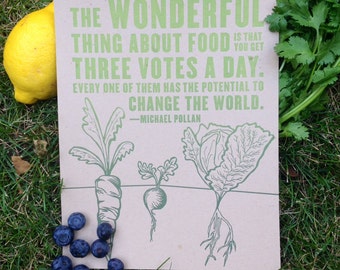 THE WONDERFUL
THING ABOUT FOOD IS THAT
YOU GET
THREE VOTES A DAY.
EVERY ONE OF THEM HAS THE POTENTIAL TO
CHANGE THE WORLD.
—MICHAEL POLLAN